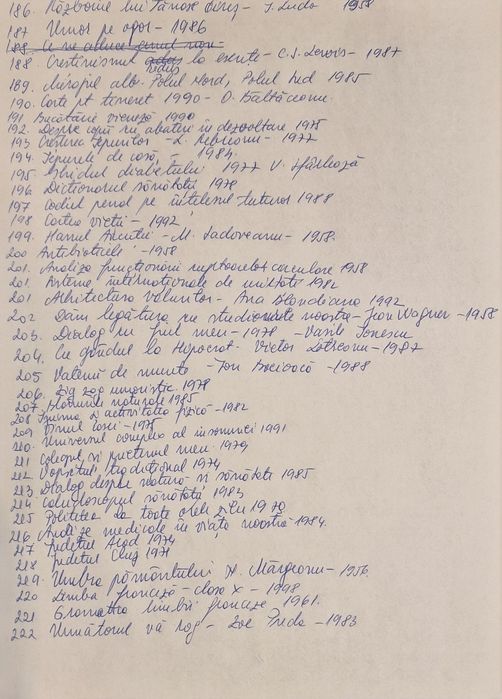 186. Războiul lui Tănase - I. Ludo 1958
187 Umor pe ogor - 1986
188 Ce ne aduce
188. Creștinismul redus la esențe - C.S. Lewis - 1987
189. Mirajul alb. Polul Nord, Polul Sud 1985
190. Carte pt tineret 1990 - O. Băltăceanu
191 Bucătărie vieneză 1990
192. Despre copii cu abateri în dezvoltare 1975
193 Creșterea iepurilor - L. Rebreanu - 1977
194. Iepurele de casă, - 1984.
195. Ghidul diabetului 1977 V.
196. Dicționarul sănătății 1978
197 Codul penal pe înțelesul tuturor 1988
198 Cartea vieții - 1992
199. Hanul Ancuței - M. Sadoveanu - 1958.
200 Antibioticele - 1958
201. Analiza funcționării 1958
201. Sisteme internaționale de unități 1982
201 Arhitectura valurilor - Ana Blandiana 1992
202 Dăm legătura cu studiourile noastre - Jean Wagner - 1958
203. Dialog cu fiul meu - 1978 - Vasile Ionescu
204. Cu gândul la Hipocrat - Victor - 1987
205 Valenii de munte - Ion Bocioacă - 1988
206. Zig zag umoristic 1978
207. naturale 1985
208 Inima și activitatea fizică - 1982
209 Vinul casei - 1975
210. Universul complex al insomniei 1991
211 Colegul și prietenul meu. 1979
212 Vopsitul tradițional 1974
213 Dialog despre natură și sănătate 1985
214 Caleidoscopul sănătății 1983
215 Politețea la toate orele zilei 1970
216 Analize medicale în viața noastră 1984.
217 Județul Arad 1974
218 Județul Cluj 1971
219. Umbra pământului H. Mărgeanu - 1956.
220 Limba franceză - clasa X - 1998
221 Gramatica limbii franceze 1961.
222 Următorul vă rog - Zoe Preda - 1983